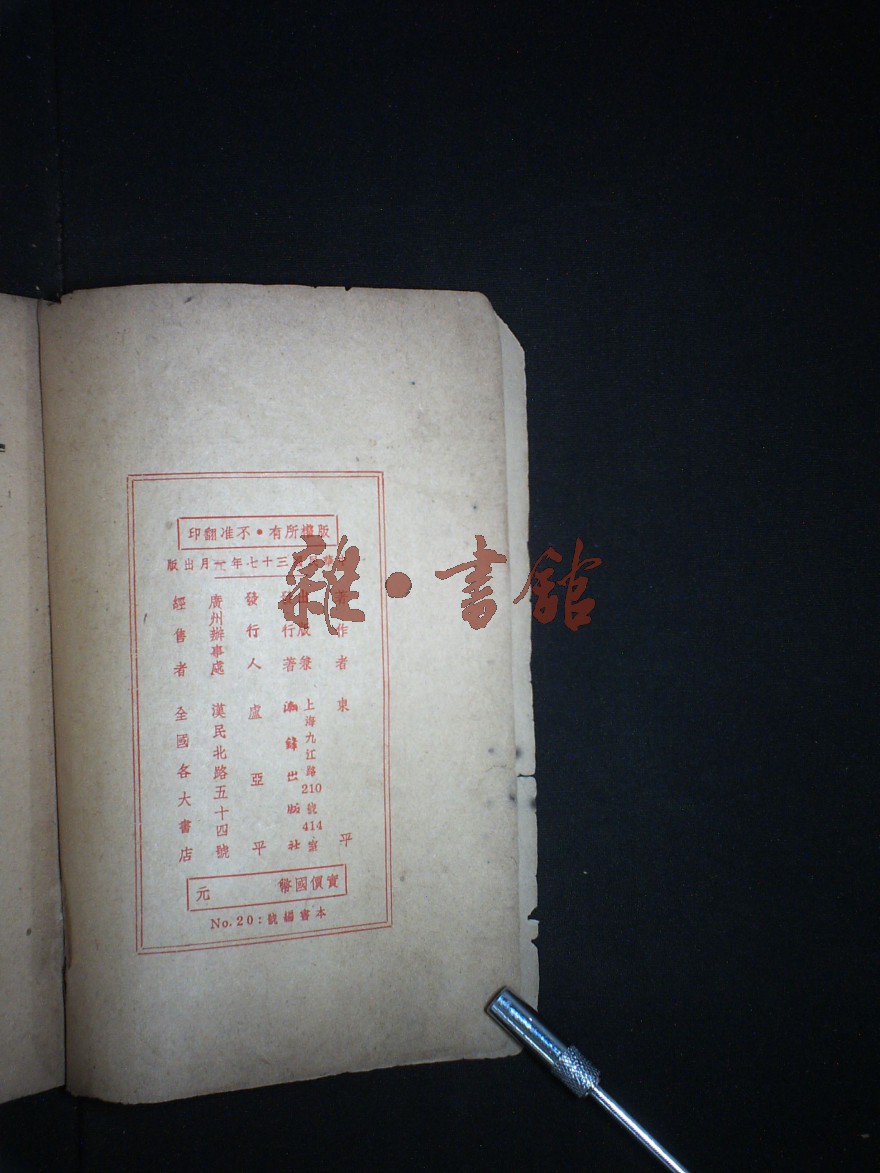 版權所有•不准翻印
三十七年 月出版
著作者 東平
出版兼發行者 上海九江路210號414室 出版社
發行人 盧亞平
廣州辦事處 漢民北路五十四號
經售者 全國各大書店
實價國幣 元
本書編號:No.20
雜•書館